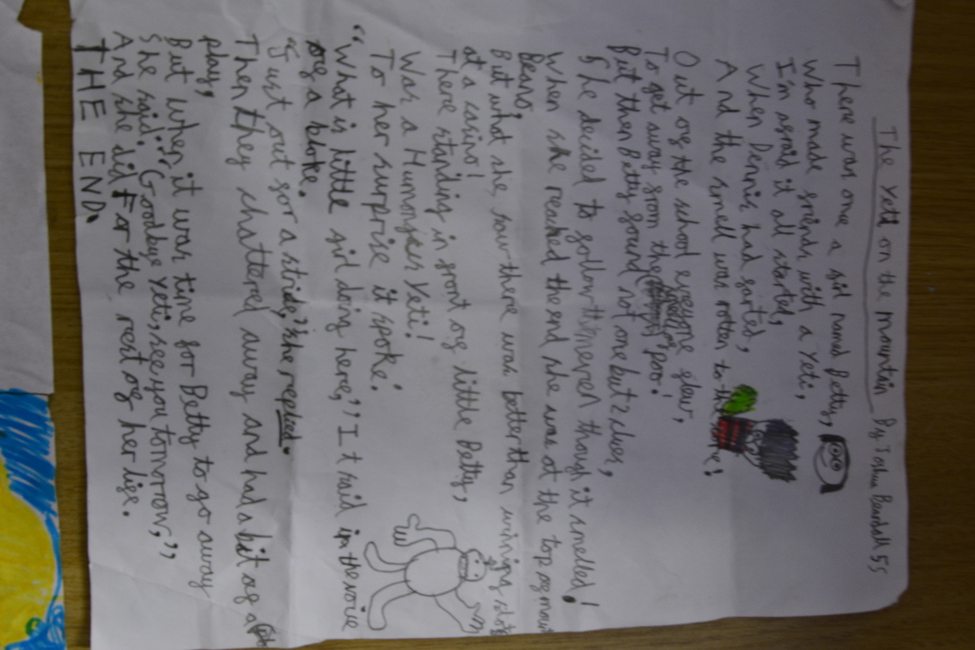 The Yeti on the mountain By Joshua Beardall 5S
There was one a girl named Betty,
Who made griends with a Yeti,
I'm agraid it all started,
When Dennis had garted,
And the smell was rotten to the core!
Out og the school everyone glew,
To get away grom the poo!
But then Betty gound not one but 2 clues,
She decided to gollow them even though it smelled!
When she reached the end she was at the top og mount
Beano,
But what she saw there was better than winning slots
at a casino!
There standing in gront og little Betty,
Was a Humongus Yeti!
To her surprise it spoke:
"What is little girl doing here," It said in the voice
og a bloke.
"Just out gor a stride," she replied.
Then they chattered away and had a bit og a
play,
But when it was time gor Betty to go away
She said: "Goodbye Yeti, see you tomorrow,"
And she did For the rest og her lige.
THE END.